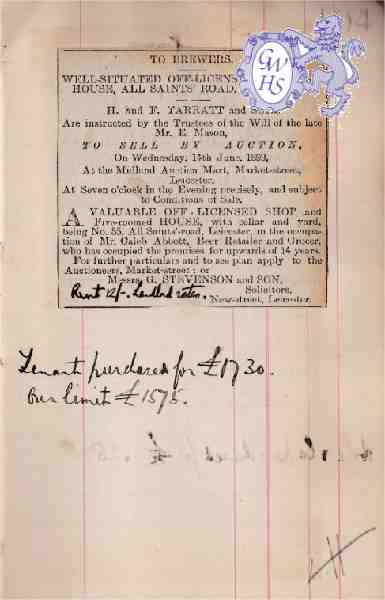 TO BREWERS.
WELL-SITUATED OFF-LICENS
HOUSE, ALL SAINTS' ROAD.
H. and F. YARRATT and
Are instructed by the Trustees of the Will of the late
Mr. E. Mason,
TO SELL BY AUCTION,
On Wednesday, 15th June,
At the Midland Auction Mart, Market-street,
Leicester,
At Seven o'clock in the Evening precisely, and subject
to Conditions of Sale.
A VALUABLE OFF-LICENSED SHOP and
Five-roomed HOUSE, with cellar and yard,
being No. 55, All Saints'-road, Leicester, in the occupa-
tion of Mr. Caleb Abbott, Beer Retailer and Grocer,
who has occupied the premises for upwards of 14 years.
For further particulars and to see plan apply to the
Auctioneers, Market-street; or
Messrs G. STEVENSON and SON,
Solicitors,
New-street, Leicester.
Rent 12/- Landlord rates.
Tenant purchased for £1730.
Our limit £1575.
GWHS